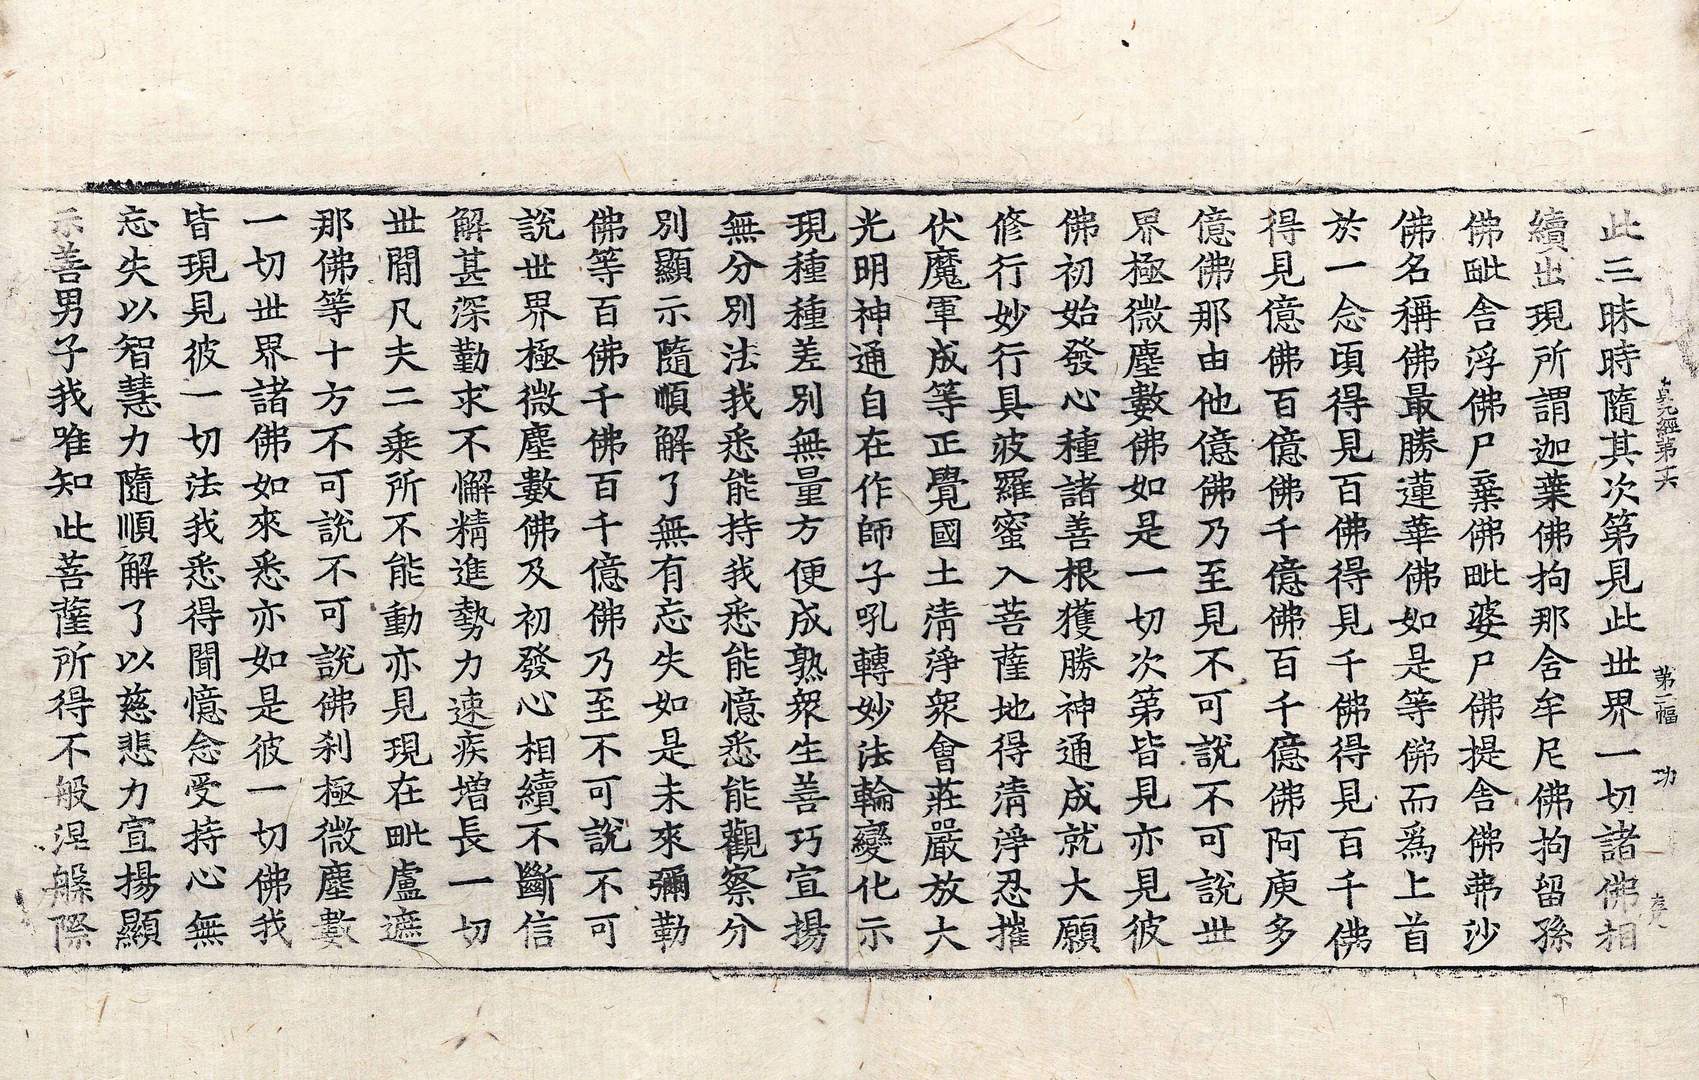 貞元經第十六 第二幅 功
此三昧時隨其次第見此丗界一切諸佛相
續出現所謂迦葉佛拘那舍牟尼佛拘留孫
佛毗舍浮佛尸棄佛毗婆尸佛提舍佛弗沙
佛名稱佛最勝蓮華佛如是等佛而爲上首
於一念頃得見百佛得見千佛得見百千佛
得見億佛百億佛千億佛百千億佛阿庾多
億佛那由他億佛乃至見不可說不可說丗
界極微塵數佛如是一切次第皆見亦見彼
佛初始發心種諸善根獲勝神通成就大願
修行妙行具波羅蜜入菩薩地得清淨忍摧
伏魔軍成等正覺國土清淨衆會莊嚴放大
光明神通自在作師子吼轉妙法輪變化示
現種種差別無量方便成熟衆生善巧宣揚
無分別法我悉能持我悉能憶悉能觀察分
別顯示隨順解了無有忘失如是未來彌勒
佛等百佛千佛百千億佛乃至不可說不可
說丗界極微塵數佛及初發心相續不斷信
解甚深勤求不懈精進勢力速疾增長一切
丗間凡夫二乘所不能動亦見現在毗盧遮
那佛等十方不可說不可說佛刹極微塵數
一切丗界諸佛如來悉亦如是彼一切佛我
皆現見彼一切法我悉得聞憶念受持心無
忘失以智慧力隨順解了以慈悲力宣揚顯
示善男子我唯知此菩薩所得不般涅槃際